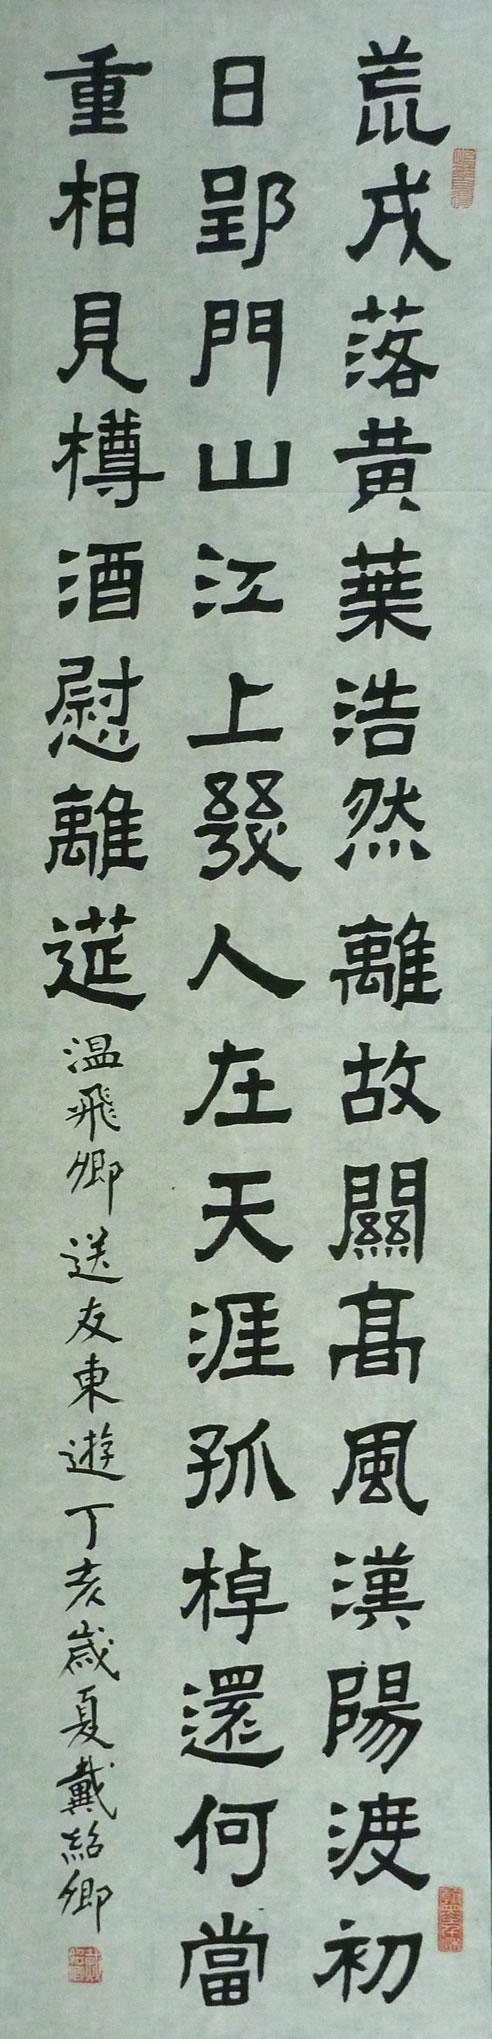 荒戍落黄葉浩然離故關髙風漢陽渡初
日郢門山江上發人在天涯孤棹還何當
重相見樽酒慰離莚
温飛卿送友東遊丁亥歲夏戴紹卿